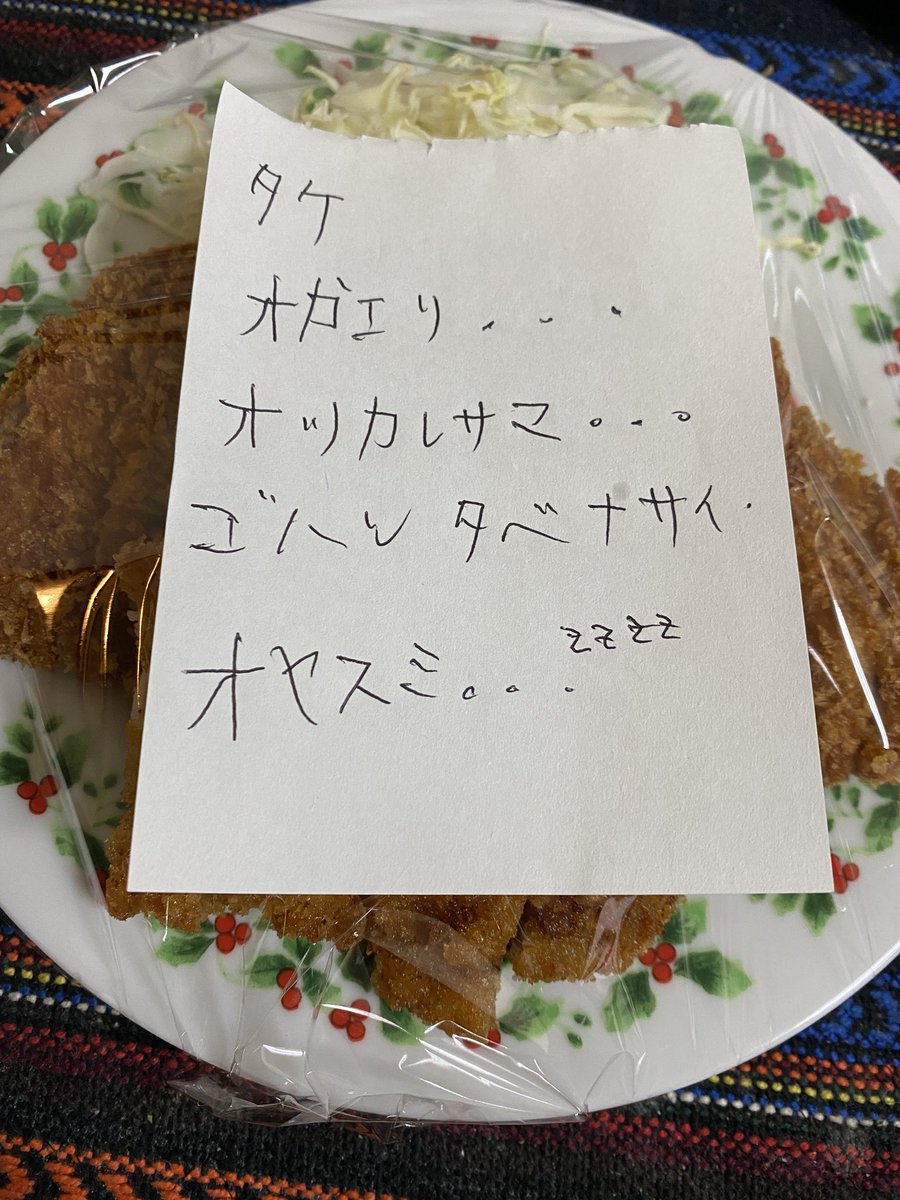 タケ
オガエリ...
オツカレサマ...
ゴハン タベナサイ.
オヤスミ...zzzz